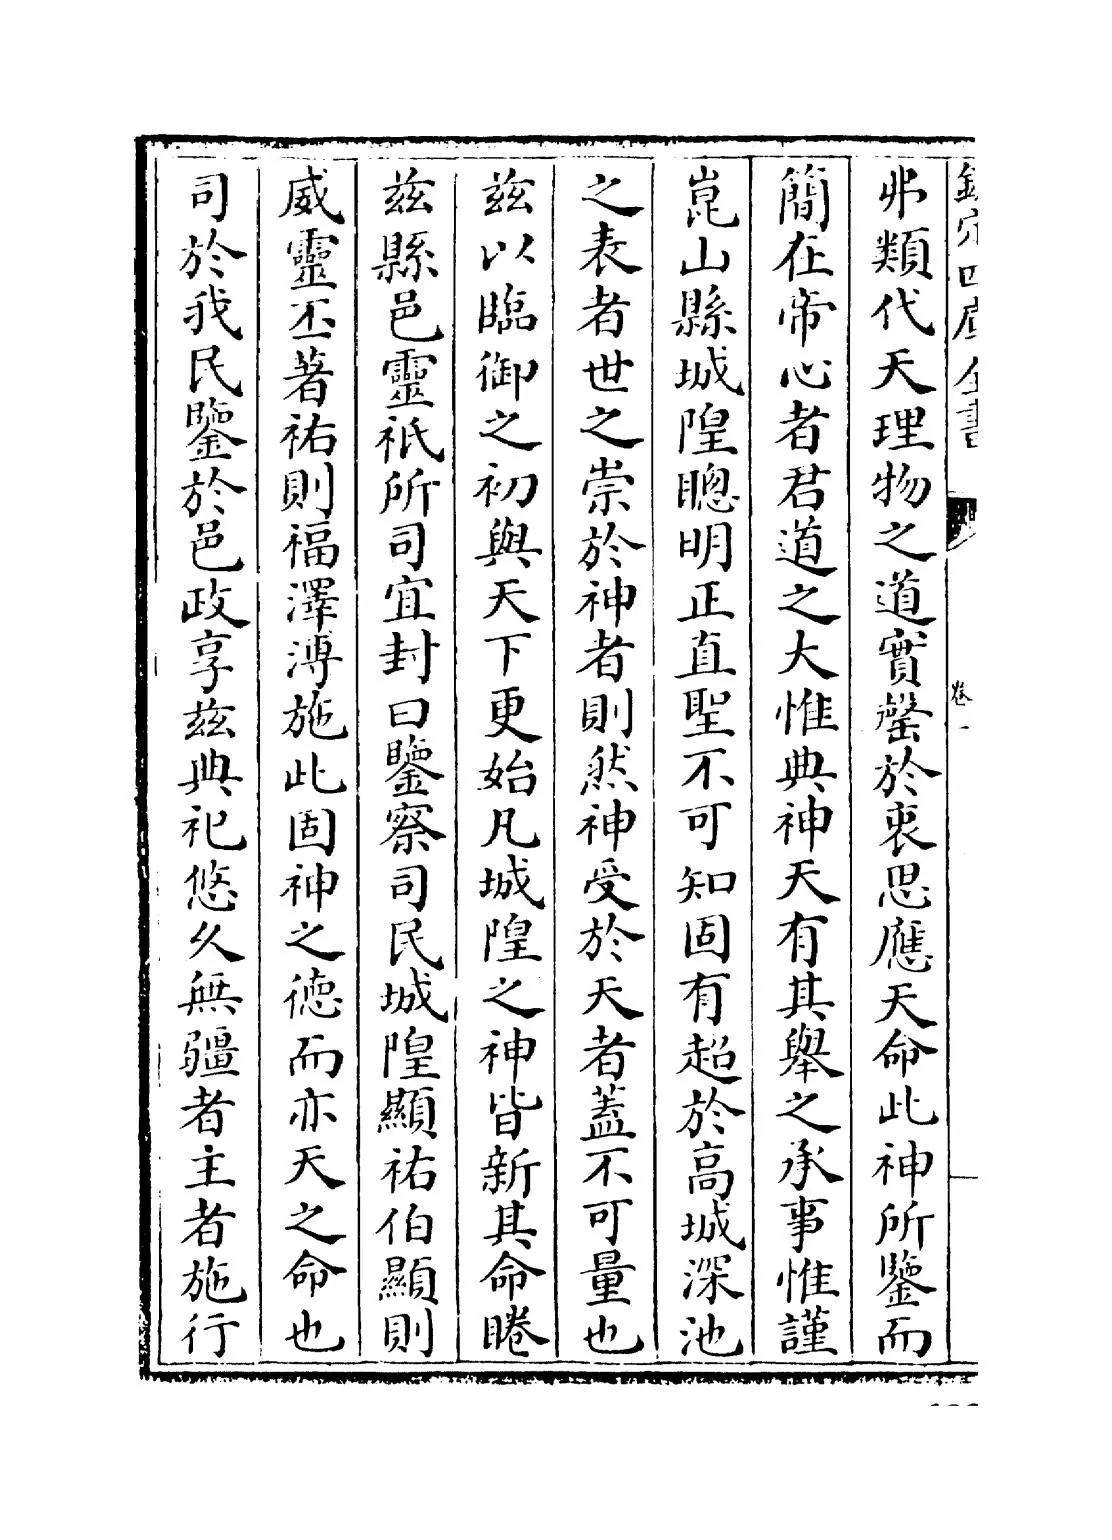 欽定四庫全書
卷一
弗類代天理物之道實罄於衷思應天命此神所鑒而
簡在帝心者君道之大惟典神天有其舉之承事惟謹
崑山縣城隍聰明正直聖不可知固有超於高城深池
之表者世之崇於神者則然神受於天者蓋不可量也
茲以臨御之初與天下更始凡城隍之神皆新其命睠
茲縣邑靈祇所司宜封曰鑒察司民城隍顯祐伯顯則
威靈丕著祐則福澤溥施此固神之德而亦天之命也
司於我民鑒於邑政享茲典祀悠久無疆者主者施行